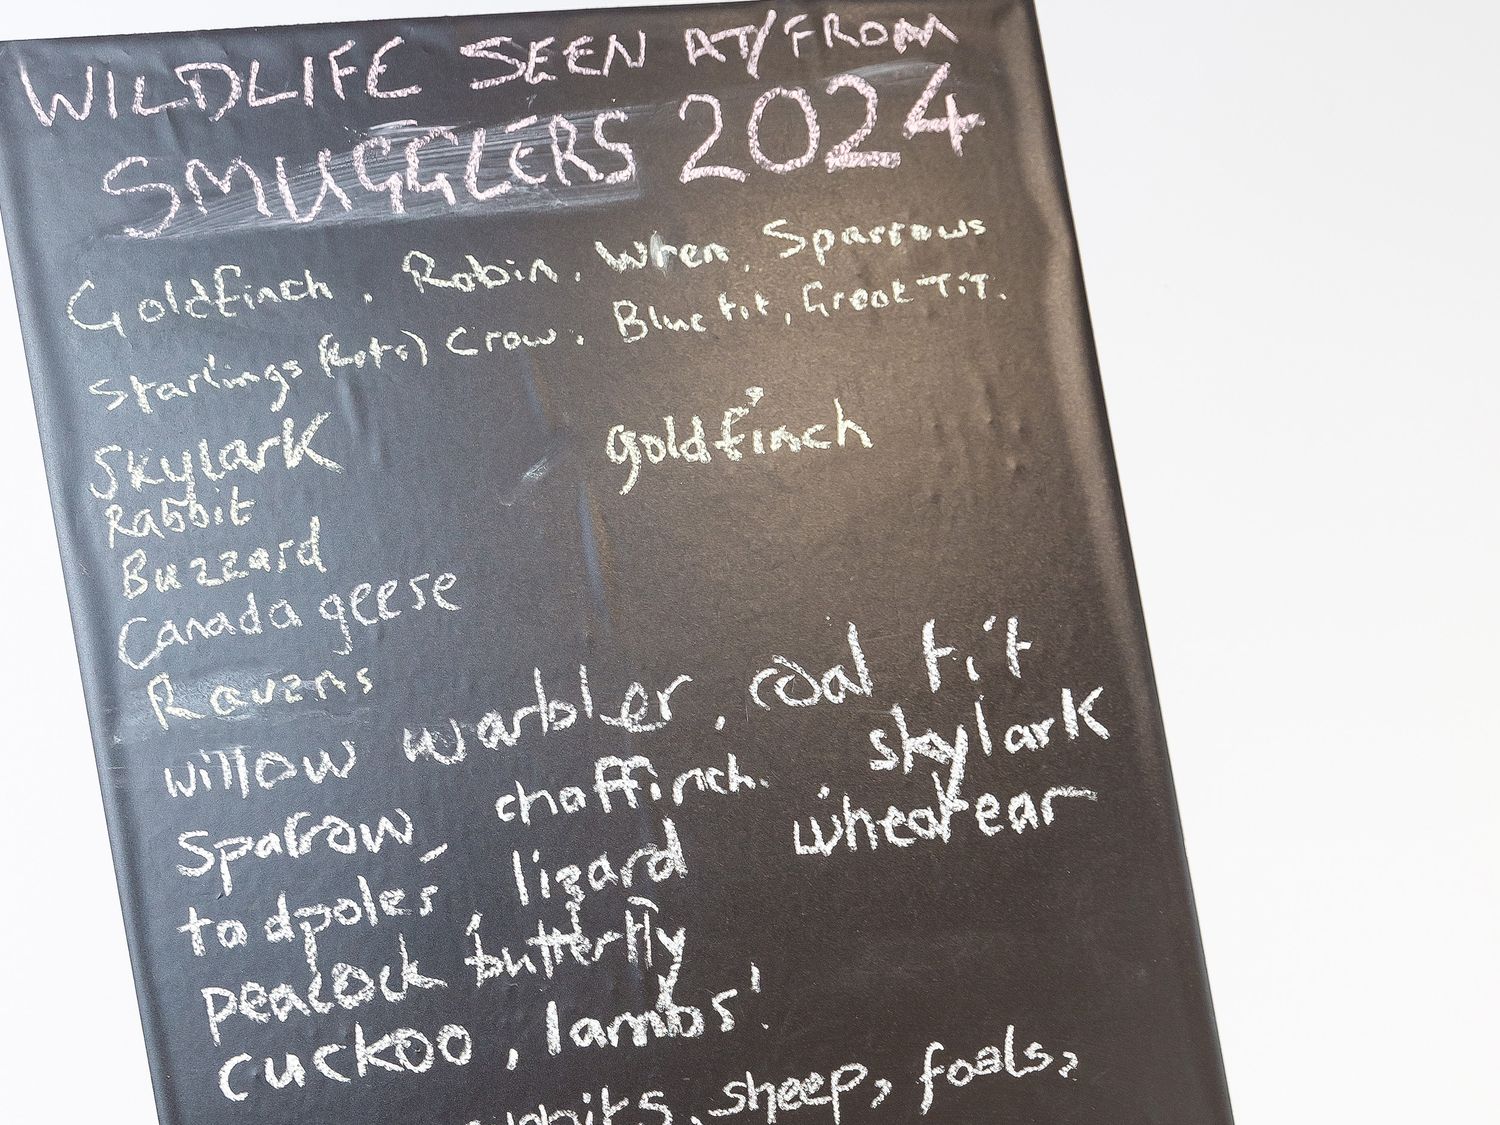 WILDLIFE SEEN AT/FROM
SMUGGLERS 2024
Goldfinch. Robin. Wren. Sparrows
Starlings (lots) Crow. Blue tit, Great TiT.
Skylark goldfinch
Rabbit
Buzzard
Canada geese
Ravens
willow warbler, coal tit
sparrow, chaffinch. skylark
todpoles, lizard wheatear
peacock butterfly
cuckoo, lambs!
sheep, foals,